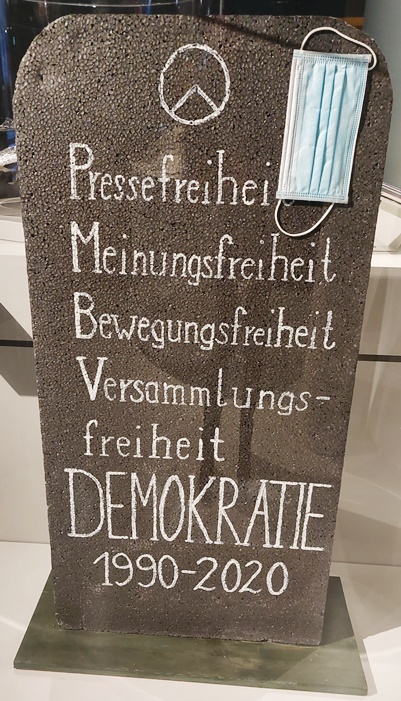 Pressefreiheit
Meinungsfreiheit
Bewegungsfreiheit
Versammlungs-
freiheit
DEMOKRATIE
1990-2020